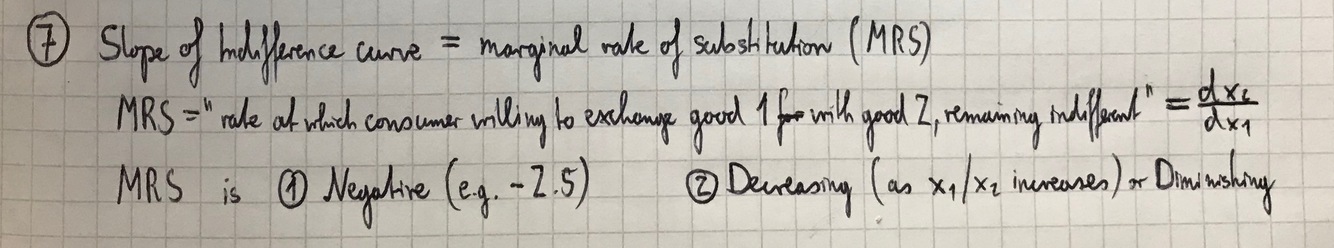 ⑦ Slope of Indifference curve = marginal rate of substitution (MRS)
MRS = "rate at which consumer willing to exchange good 1 for with good 2, remaining indifferent" = dx₂/dx₁
MRS is ① Negative (e.g. -2.5) ② Decreasing (as x₁/x₂ increases) or Diminishing